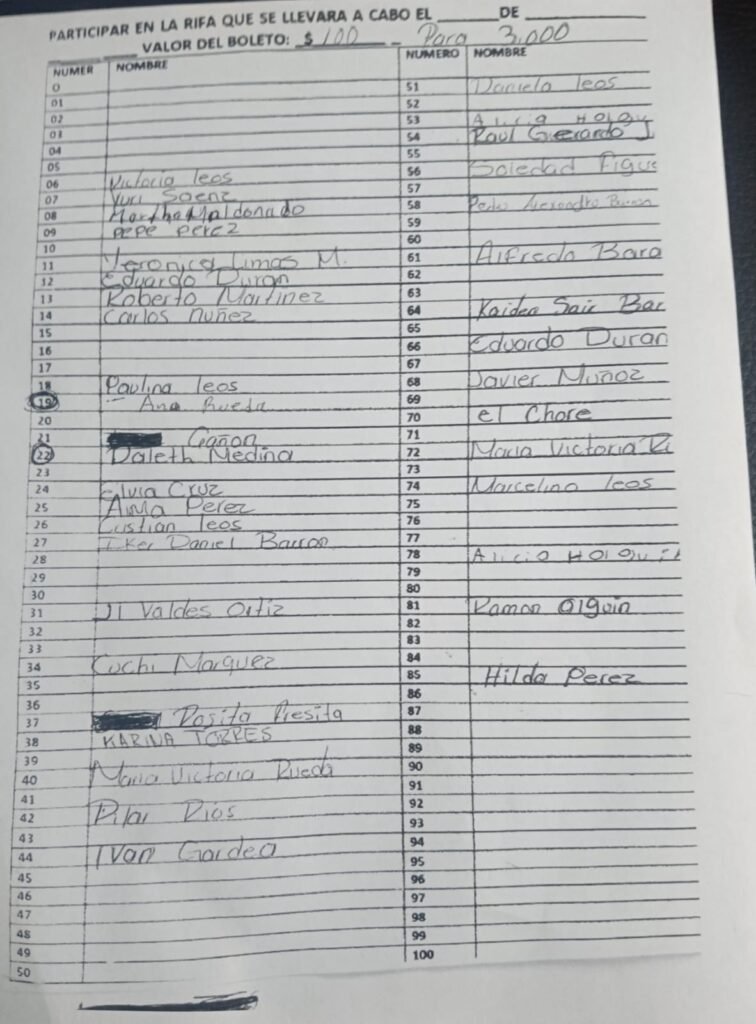 PARTICIPAR EN LA RIFA QUE SE LLEVARA A CABO EL ______ DE ______
VALOR DEL BOLETO: $ 100 Para 3,000
NUMER NOMBRE
0
01
02
03
04
05
06 Victoria leos
07 Yuri Saenz
08 Martha Maldonado
09 pepe perez
10
11 Veronica Limas M.
12 Eduardo Duran
13 Roberto Martinez
14 Carlos Nuñez
15
16
17
18 Paulina leos
19 Ana Rueda
20
21 Gañon
22 Daleth Medina
23
24 Elvia Cruz
25 Perez
26 leos
27 Iker Daniel Barron
28
29
30
31 Valdes Ortiz
32
33
34 Cuchi Marquez
35
36
37 Rosita Fresita
38 KARINA TORRES
39
40 Maria Victoria Rueda
41
42 Pilar Rios
43
44 Ivan Gardea
45
46
47
48
49
50
NUMERO NOMBRE
51 Daniela leos
52
53 Alicia Holgu
54 Raul Gerardo J
55
56 Soledad Figue
57
58 Pedro Alexandro Barron
59
60
61 Alfredo Bara
62
63
64 Kaiden Bar
65
66 Eduardo Duran
67
68 Javier Muñoz
69
70 el Chore
71
72 Maria Victoria Ri
73
74 Marcelino leos
75
76
77
78 Alicia Holguin
79
80
81 Ramon Olguin
82
83
84
85 Hilda Perez
86
87
88
89
90
91
92
93
94
95
96
97
98
99
100